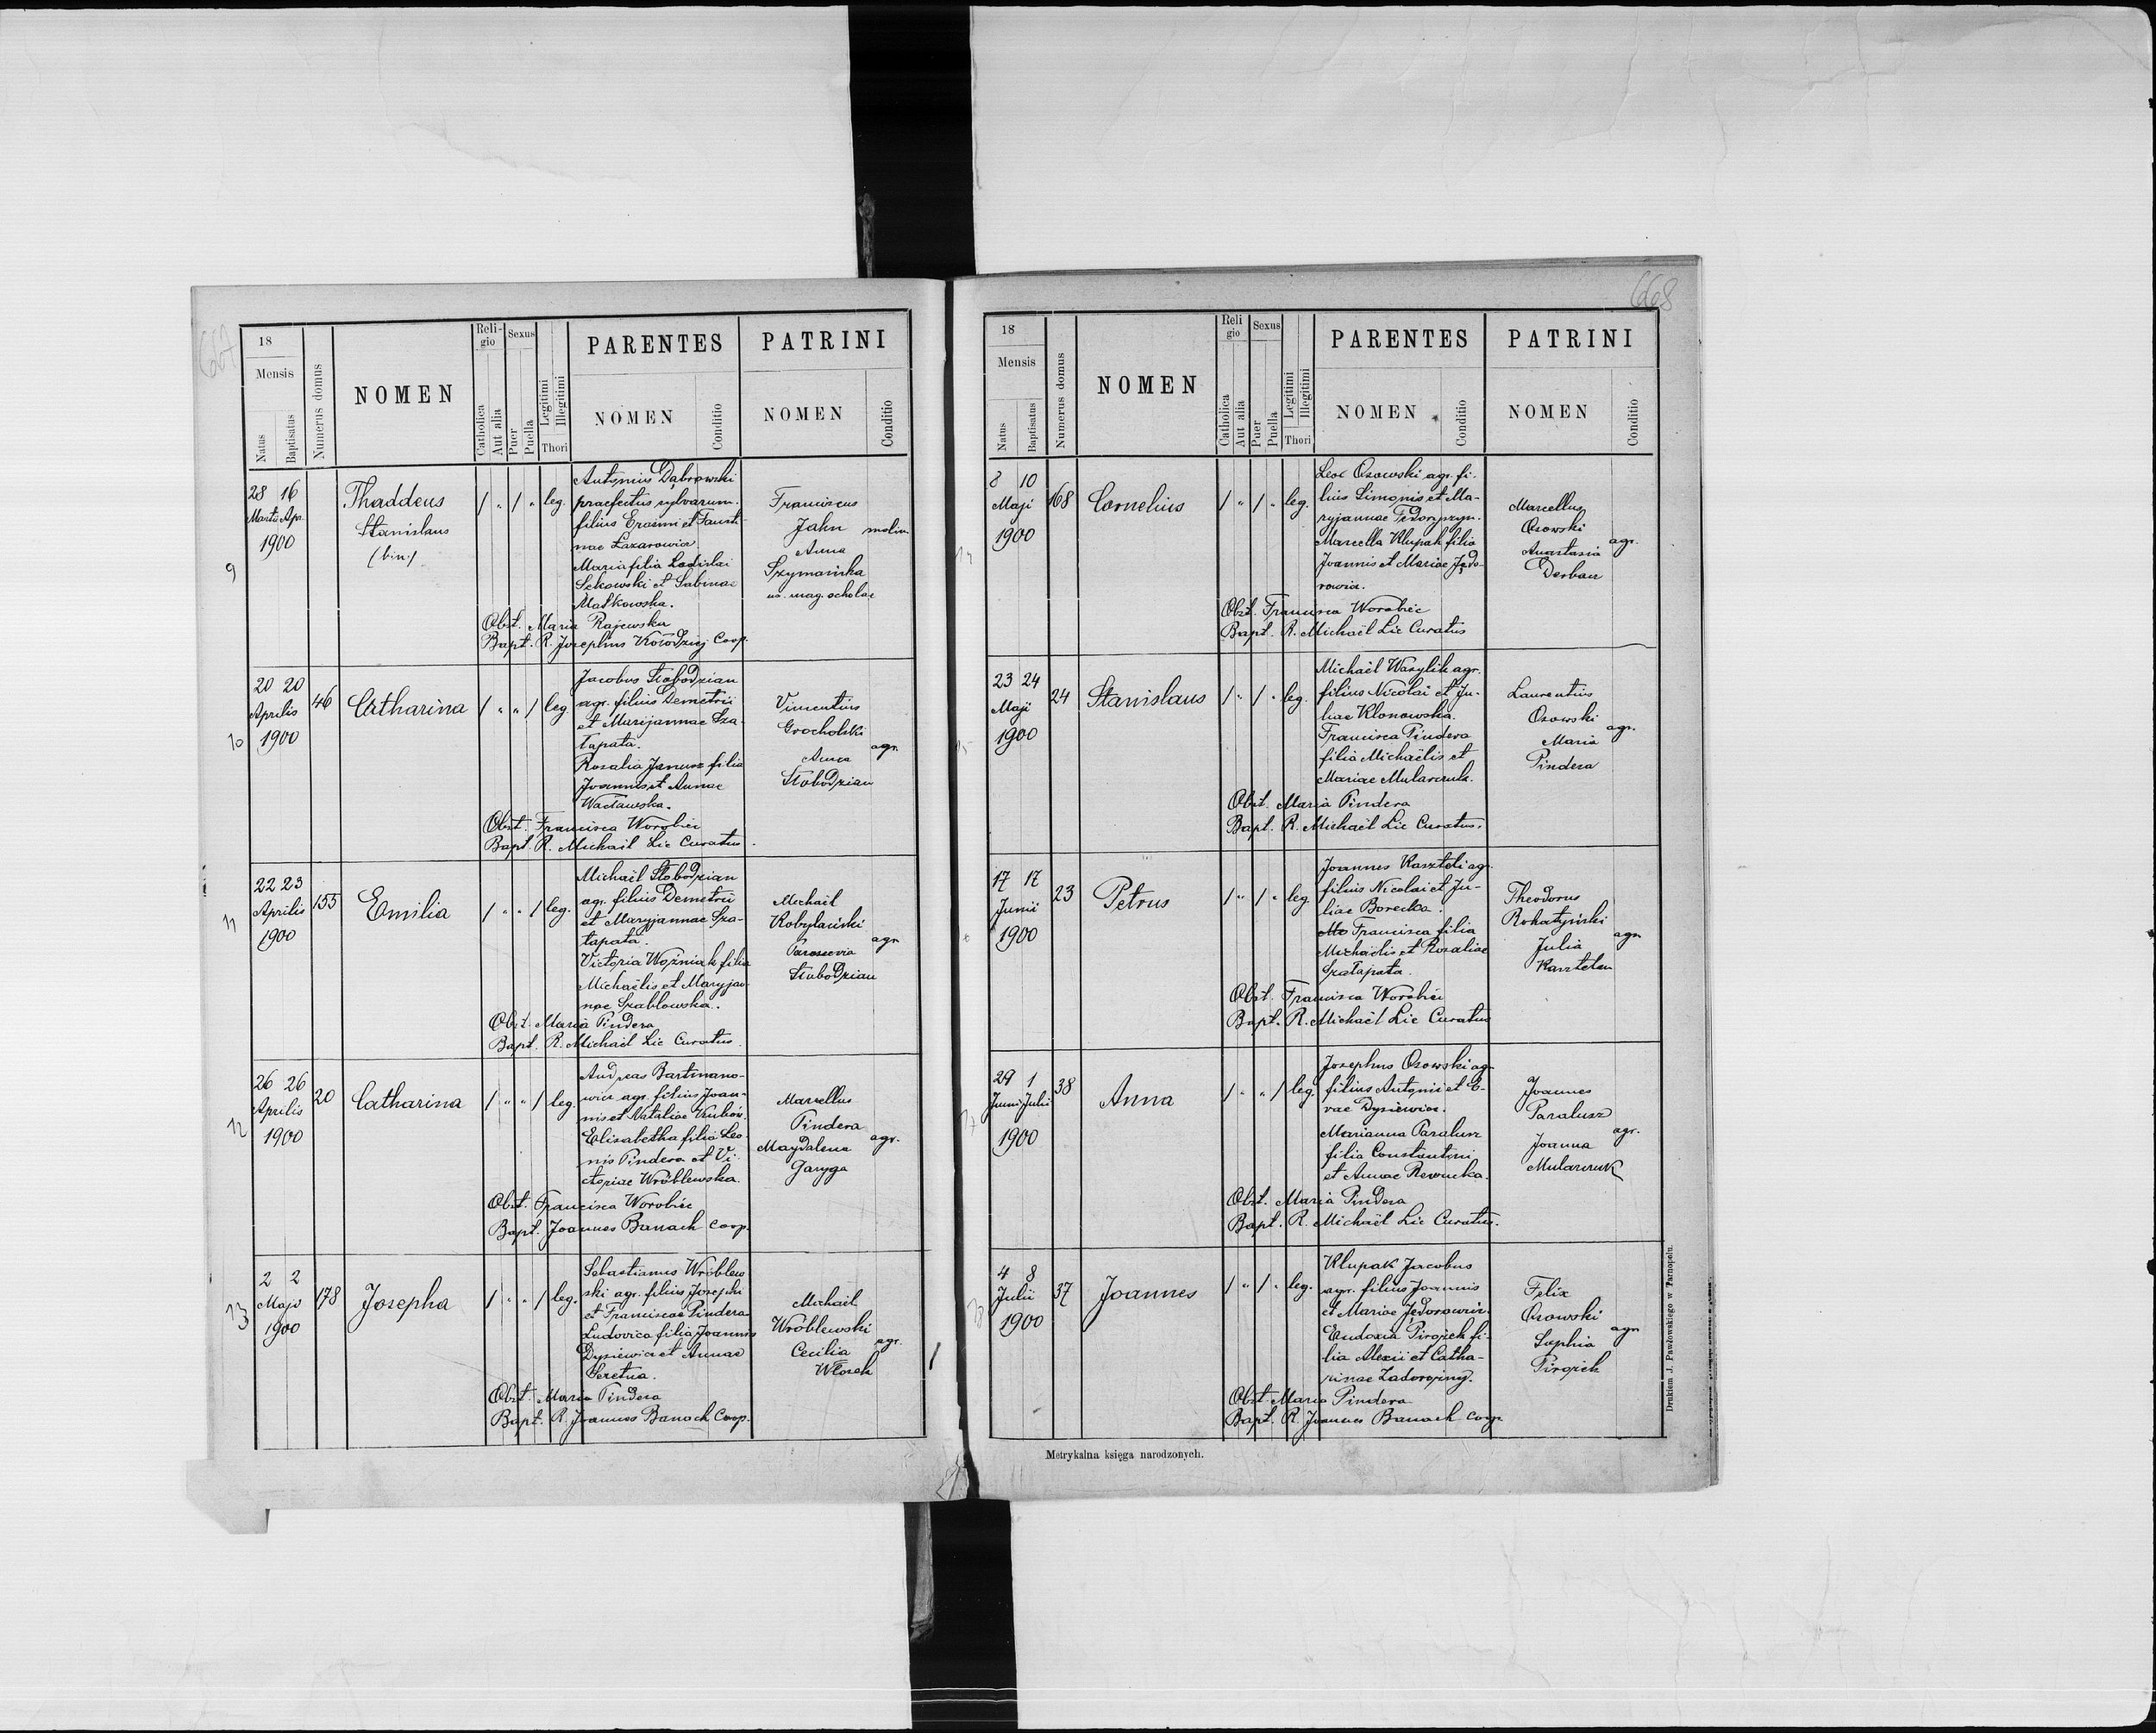 667
18
Mensis
Natus
Baptisatus
Numerus domus
NOMEN
Religio
Catholica
Aut alia
Sexus
Puer
Puella
Legitimi
Illegitimi
Thori
PARENTES
NOMEN
Conditio
PATRINI
NOMEN
Conditio
9
28 16
Martii Apr.
1900
Thaddeus
Stanislaus
(bin:)
/ „ / „ leg.
Antonius Dąbrowski
praefectus sylvarum.
filius Erasmi et Fausti-
nae Łazarowicz.
Maria filia Ladislai
Sękowski et Sabinae
Małkowska.
Franciscus
Jahn molin.
Anna
Szymańska
ux. mag. scholae
Obst. Maria Rajewska
Bapt. R. Josephus Kołodziej Coop.
10
20 20
Aprilis
1900
46
Catharina
/ „ „ / leg.
Jacobus Słobodzian
agr. filius Demetrii
et Marijannae Sza-
łapata.
Rozalia Janusz filia
Joannis et Annae
Wacławska.
Vincentius
Grocholski
agr.
Anna
Słobodzian
Obst. Francisca Worobiec
Bapt. R. Michaël Lic Curatus.
11
22 23
Aprilis
1900
155
Emilia
/ „ „ / leg.
Michaël Słobodzian
agr. filius Demetrii
et Maryjannae Sza-
łapata.
Victoria Woźniak filia
Michaëlis et Maryjan-
nae Szablowska.
Michaël
Kobylański
agr.
Parascevia
Słobodzian
Obst. Maria Pindera
Bapt. R. Michaël Lic Curatus.
12
26 26
Aprilis
1900
20
Catharina
/ „ „ / leg.
Andreas Bartmano-
wicz agr. filius Joan-
nis et Nataliae
Elisabetha filia Leo-
nis Pindera et Vi-
ctoriae Wróblewska.
Marcellus
Pindera
agr.
Magdalena
Garyga
Obst. Francisca Worobiec
Bapt. Joannes Banach Coop.
13
2 2
Maji
1900
178
Josepha
/ „ „ / leg.
Sebastianus Wróblew-
ski agr. filius Josephi
et Franciscae Pindera
Ludovica filia Joannis
Dysiewicz et Annae
Seretna.
Michaël
Wróblewski
agr.
Cecilia
Włosek
Obst. Maria Pindera
Bapt. R. Joannes Banach Coop.
668
18
Mensis
Natus
Baptisatus
Numerus domus
NOMEN
Religio
Catholica
Aut alia
Sexus
Puer
Puella
Legitimi
Illegitimi
Thori
PARENTES
NOMEN
Conditio
PATRINI
NOMEN
Conditio
8 10
Maji
1900
168
Cornelius
/ „ / „ leg.
Leo Osowski agr. fi-
lius Simonis et Ma-
ryjannae
Marcella Klupak filia
Joannis et Mariae Jędo-
rowicz.
Marcellus
Osowski
agr.
Anastasia
Derbau
Obst. Francisca Worobiec
Bapt. R. Michaël Lic Curatus
23 24
Maji
1900
24
Stanislaus
/ „ / „ leg.
Michaël Wasylik agr.
filius Nicolai et Ju-
liae Klonowska.
Francisca Pindera
filia Michaëlis et
Mariae Mularczuk.
Laurentius
Osowski
agr.
Maria
Pindera
Obst. Maria Pindera
Bapt. R. Michaël Lic Curatus.
17 17
Junii
1900
23
Petrus
/ „ / „ leg.
Joannes Kaszteli agr.
filius Nicolai et Ju-
liae Borecka.
Francisca filia
Michaëlis et Rosaliae
Szałapata.
Theodorus
Rohatyński
agr.
Julia
Kasztelan
Obst. Francisca Worobiec
Bapt. R. Michaël Lic Curatus
29 1
Junii Julii
1900
38
Anna
/ „ „ / leg.
Josephus Osowski agr.
filius Antonii et E-
vae Dysiewicz.
Marianna Paralusz
filia Constantini
et Annae Rewucka.
Joannes
Paralusz
agr.
Joanna
Mularczuk
Obst. Maria Pindera
Bapt. R. Michaël Lic Curatus.
4 8
Julii
1900
37
Joannes
/ „ / „ leg.
Klupak Jacobus
agr. filius Joannis
et Mariae Jędorowicz.
Eudoxia Pirożek fi-
lia Alexii et Catha-
rinae Zadorożny.
Felix
Osowski
agr.
Sophia
Pirożek
Obst. Maria Pindera
Bapt. R. Joannes Banach Coop.
Metrykalna księga narodzonych.
Drukiem J. Pawłowskiego w Tarnopolu.